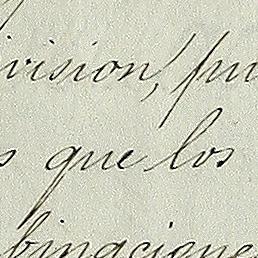 ivision, pu
s que los
binacione